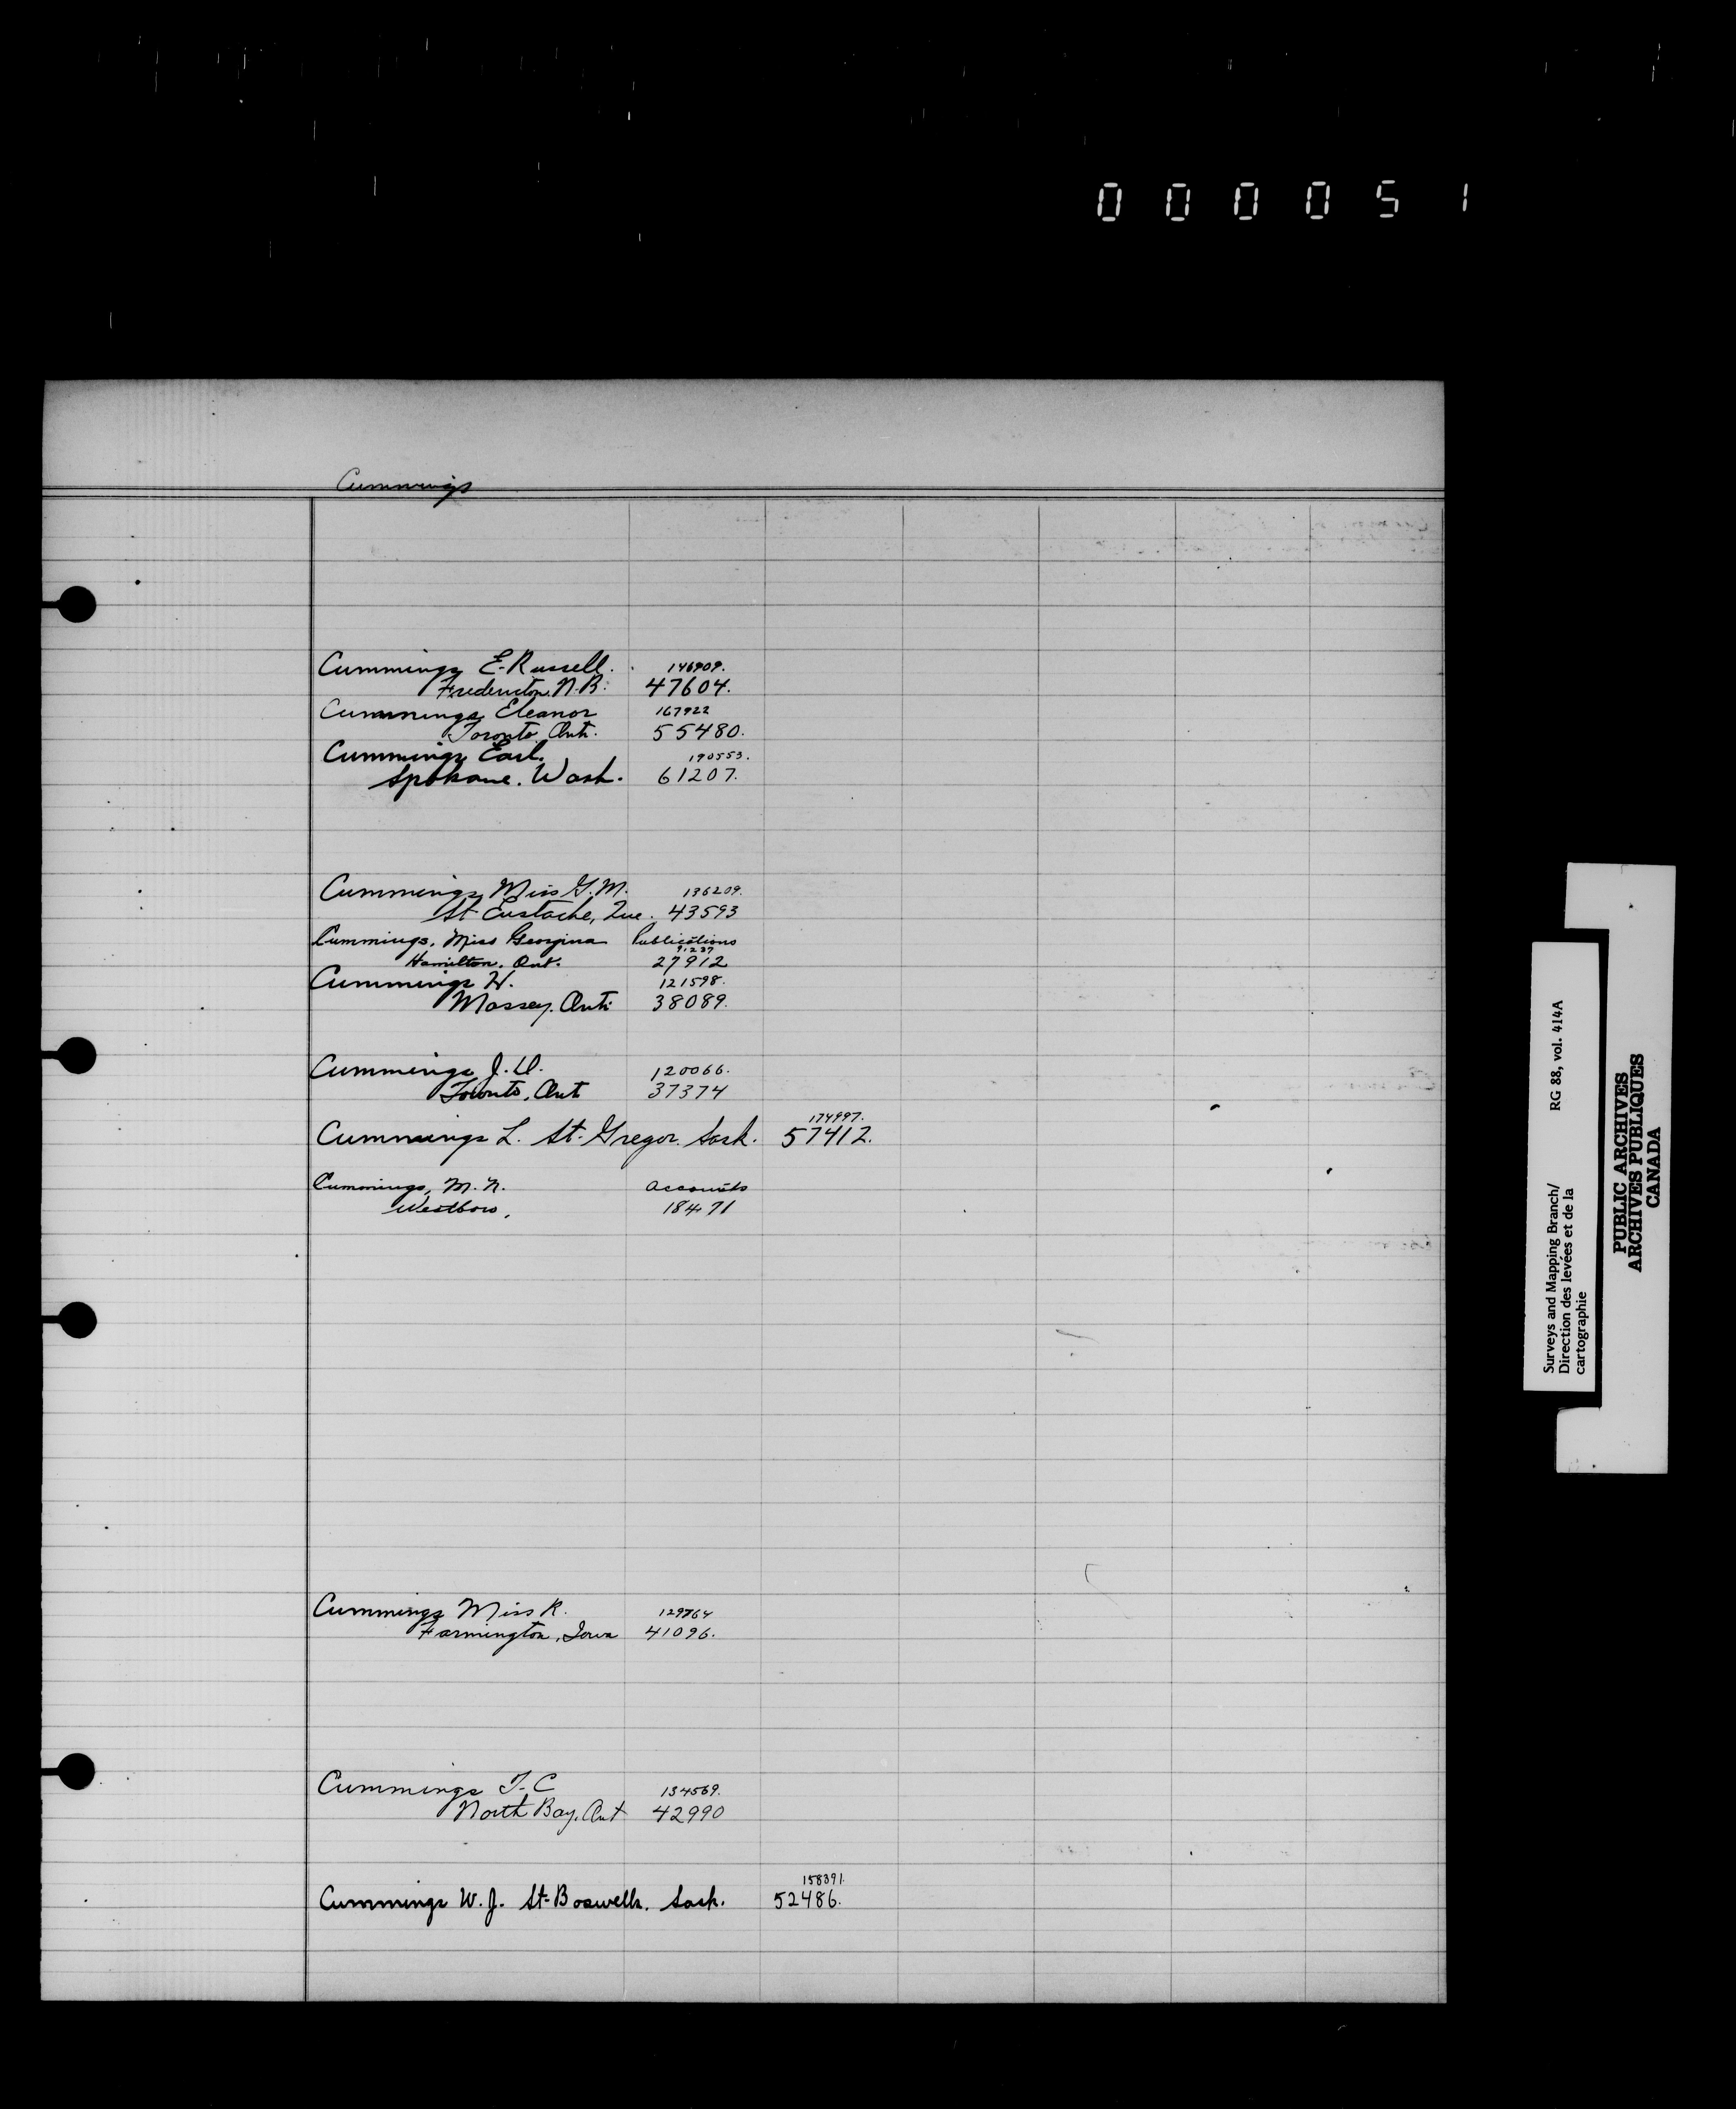 000051
Cummings
Cummings E. Russell. 146909.
Fredericton, N.B. 47604.
Cummings Eleanor 167922
Toronto Ont. 55480.
Cummings Earl. 190553.
Spokane. Wash. 61207.
Cummings Miss G.M. 136209.
St Eustache, Que. 43593
Cummings, Miss Georgina Publications
91237
Hamilton, Ont. 27912
Cummings H. 121598.
Massey. Ont. 38089.
Cummings J.D. 120066.
Toronto, Ont 37374
174997.
Cummings L. St. Gregor. Sask. 57412.
Cummings, M.N. Accounts
Westboro, 18471
Cummings Miss R. 129764
Farmington, Iowa 41096.
Cummings T.C 134569.
North Bay, Ont 42990
158391.
Cummings W.J. St. Boswells. Sask. 52486.
Surveys and Mapping Branch/ RG 88, vol. 414A
Direction des levées et de la
cartographie
PUBLIC ARCHIVES
ARCHIVES PUBLIQUES
CANADA